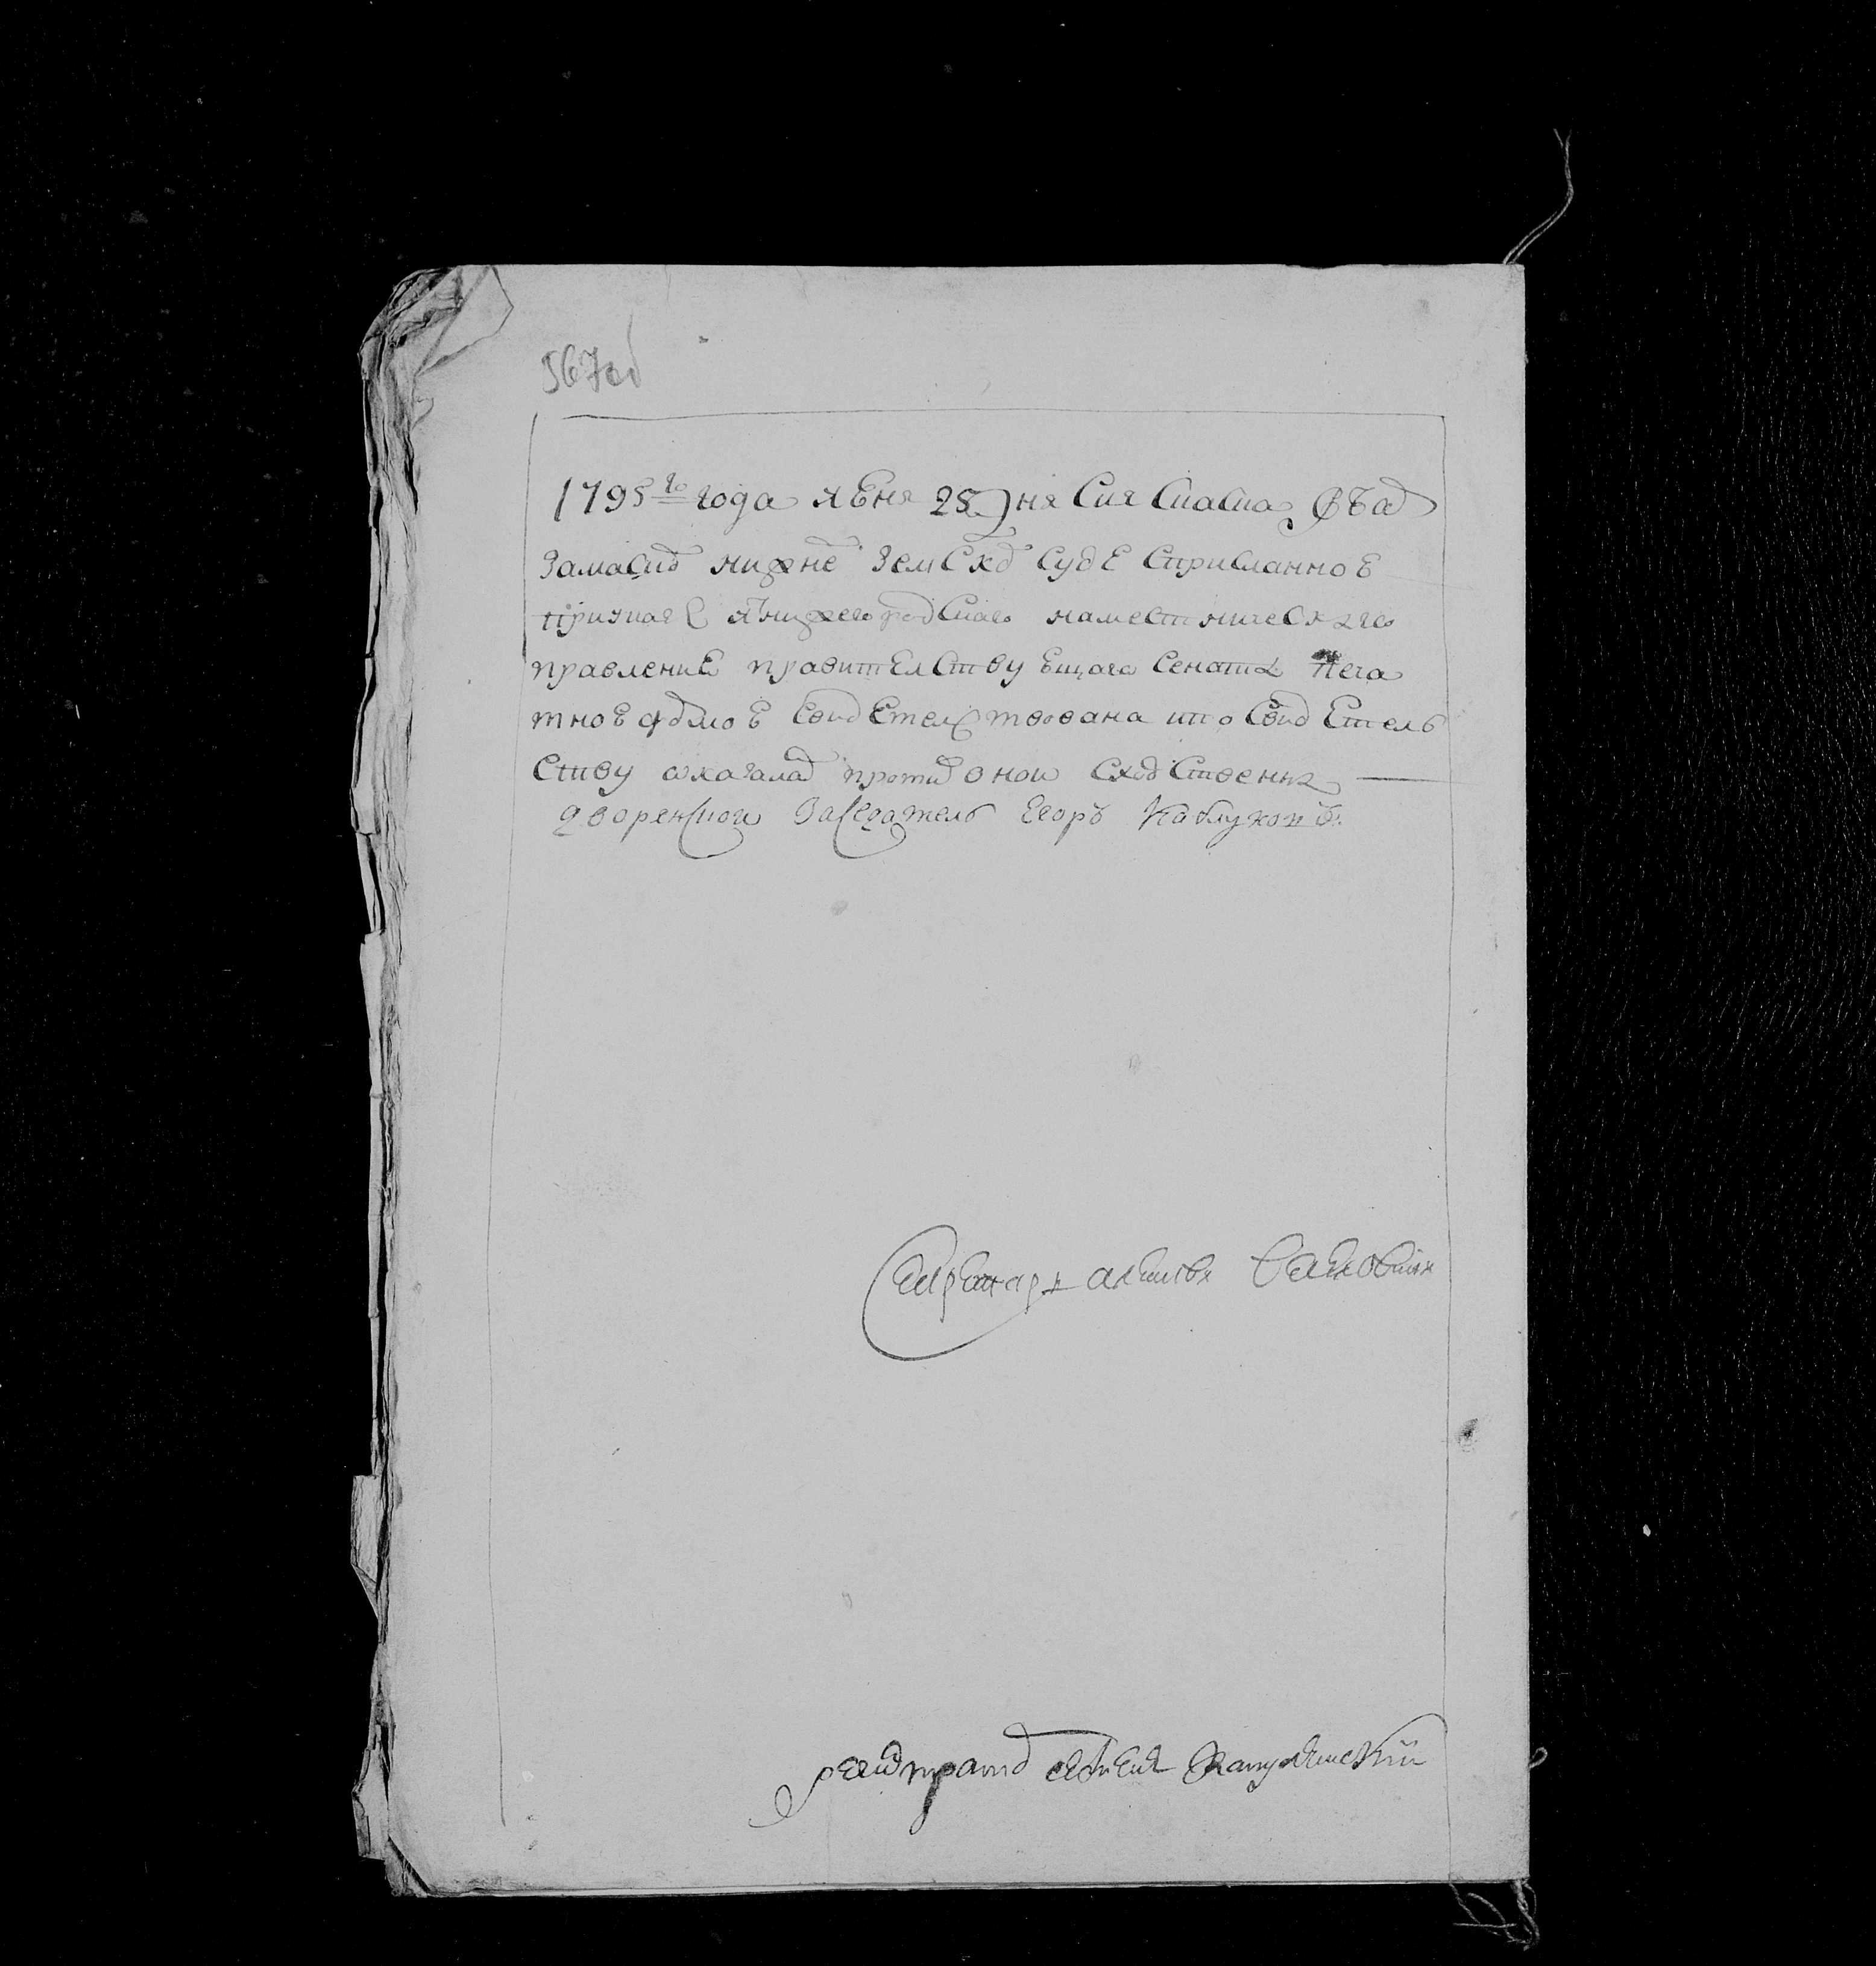 567об
1795го года июня 25 дня Сия скаска въ ар
замаскомъ нижнемъ земскомъ суде сприсланною
при указе изнижегородскаго наместническаго
правления правителствующаго сената печа
тною формою свидетелствована и по свидетель
ству оказалась противъ оной сходственна
дворенской заседатель Егоръ Каблуковъ
Секретарь Алексей
регистраторъ